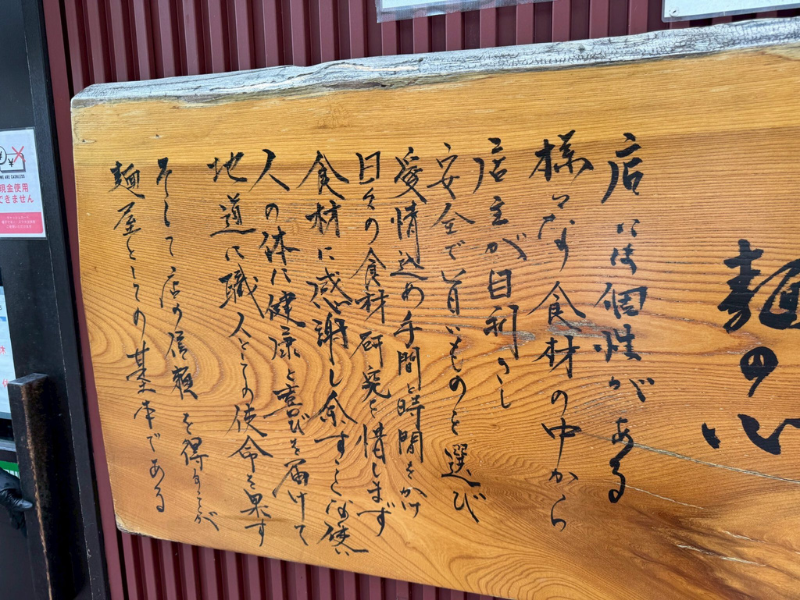 麺の心
店には個性がある
様々な食材の中から
店主が目利きし
安全で旨いものを選び
愛情込め手間と時間をかけ
日々の食材研究を惜しまず
食材に感謝し余すことなく使い
人の体に健康と喜びを届けて
地道に職人としての使命を果す
そして店の信頼を得ることが
麺屋としての基本である
現金使用
できません